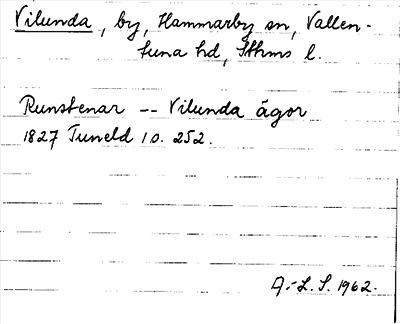 Vilunda, by, Hammarby sn, Vallen-
tuna hd, Sthms l.
Runstenar -- Vilunda ägor
1827 Tuneld 10. 252.
A.-L. S. 1962.